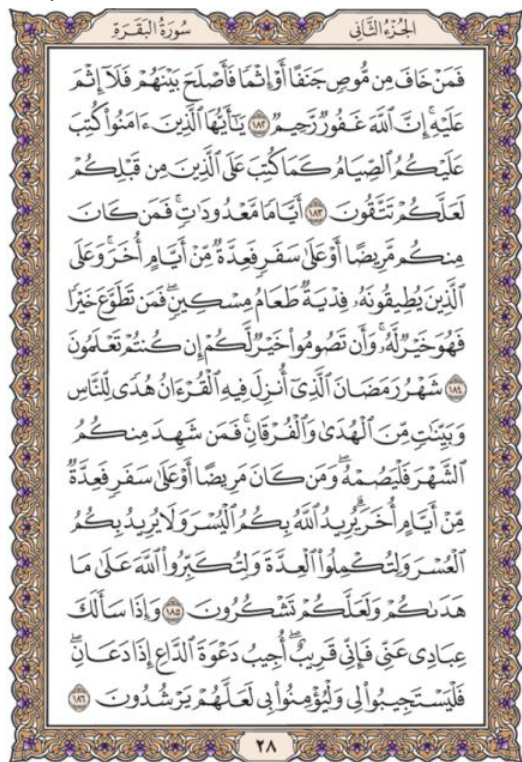 الجُزْءُ الثَّانِي
سُورَةُ البَقَرَةِ
فَمَنْ خَافَ مِن مُّوصٍ جَنَفًا أَوْ إِثْمًا فَأَصْلَحَ بَيْنَهُمْ فَلَآ إِثْمَ
عَلَيْهِۚ إِنَّ ٱللَّهَ غَفُورٌ رَّحِيمٌ ١٨٢ يَٰٓأَيُّهَا ٱلَّذِينَ ءَامَنُوا۟ كُتِبَ
عَلَيْكُمُ ٱلصِّيَامُ كَمَا كُتِبَ عَلَى ٱلَّذِينَ مِن قَبْلِكُمْ
لَعَلَّكُمْ تَتَّقُونَ ١٨٣ أَيَّامًا مَّعْدُودَٰتٍۚ فَمَن كَانَ
مِنكُم مَّرِيضًا أَوْ عَلَىٰ سَفَرٍ فَعِدَّةٌ مِّنْ أَيَّامٍ أُخَرَۚ وَعَلَى
ٱلَّذِينَ يُطِيقُونَهُۥ فِدْيَةٌ طَعَامُ مِسْكِينٍۖ فَمَن تَطَوَّعَ خَيْرًا
فَهُوَ خَيْرٌ لَّهُۥۚ وَأَن تَصُومُوا۟ خَيْرٌ لَّكُمْ إِن كُنتُمْ تَعْلَمُونَ
١٨٤ شَهْرُ رَمَضَانَ ٱلَّذِىٓ أُنزِلَ فِيهِ ٱلْقُرْءَانُ هُدًى لِّلنَّاسِ
وَبَيِّنَٰتٍ مِّنَ ٱلْهُدَىٰ وَٱلْفُرْقَانِۚ فَمَن شَهِدَ مِنكُمُ
ٱلشَّهْرَ فَلْيَصُمْهُۖ وَمَن كَانَ مَرِيضًا أَوْ عَلَىٰ سَفَرٍ فَعِدَّةٌ
مِّنْ أَيَّامٍ أُخَرَۗ يُرِيدُ ٱللَّهُ بِكُمُ ٱلْيُسْرَ وَلَا يُرِيدُ بِكُمُ
ٱلْعُسْرَ وَلِتُكْمِلُوا۟ ٱلْعِدَّةَ وَلِتُكَبِّرُوا۟ ٱللَّهَ عَلَىٰ مَا
هَدَىٰكُمْ وَلَعَلَّكُمْ تَشْكُرُونَ ١٨٥ وَإِذَا سَأَلَكَ
عِبَادِى عَنِّى فَإِنِّى قَرِيبٌۖ أُجِيبُ دَعْوَةَ ٱلدَّاعِ إِذَا دَعَانِۖ
فَلْيَسْتَجِيبُوا۟ لِى وَلْيُؤْمِنُوا۟ بِى لَعَلَّهُمْ يَرْشُدُونَ ١٨٦
٢٨